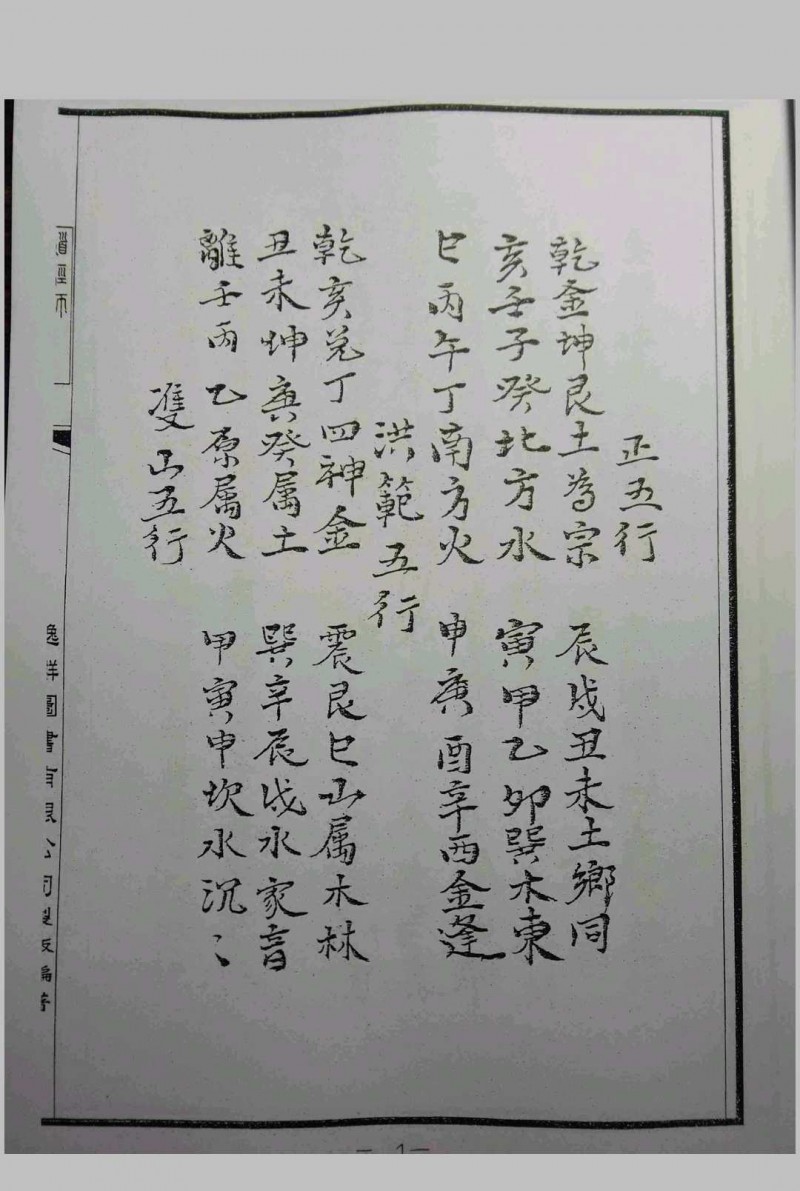 正五行
乾金坤艮土為宗 辰戌丑未土鄉同
亥壬子癸北方水 寅甲乙卯巽木東
巳丙午丁南方火 申庚酉辛西金逢
洪範五行
乾亥兌丁四神金 震艮巳山属木林
丑未坤庚癸属土 巽辛辰戌水家音
離壬丙乙原属火 甲寅申坎水沉〻
雙山五行
逸群圖書有限公司製版編著
1